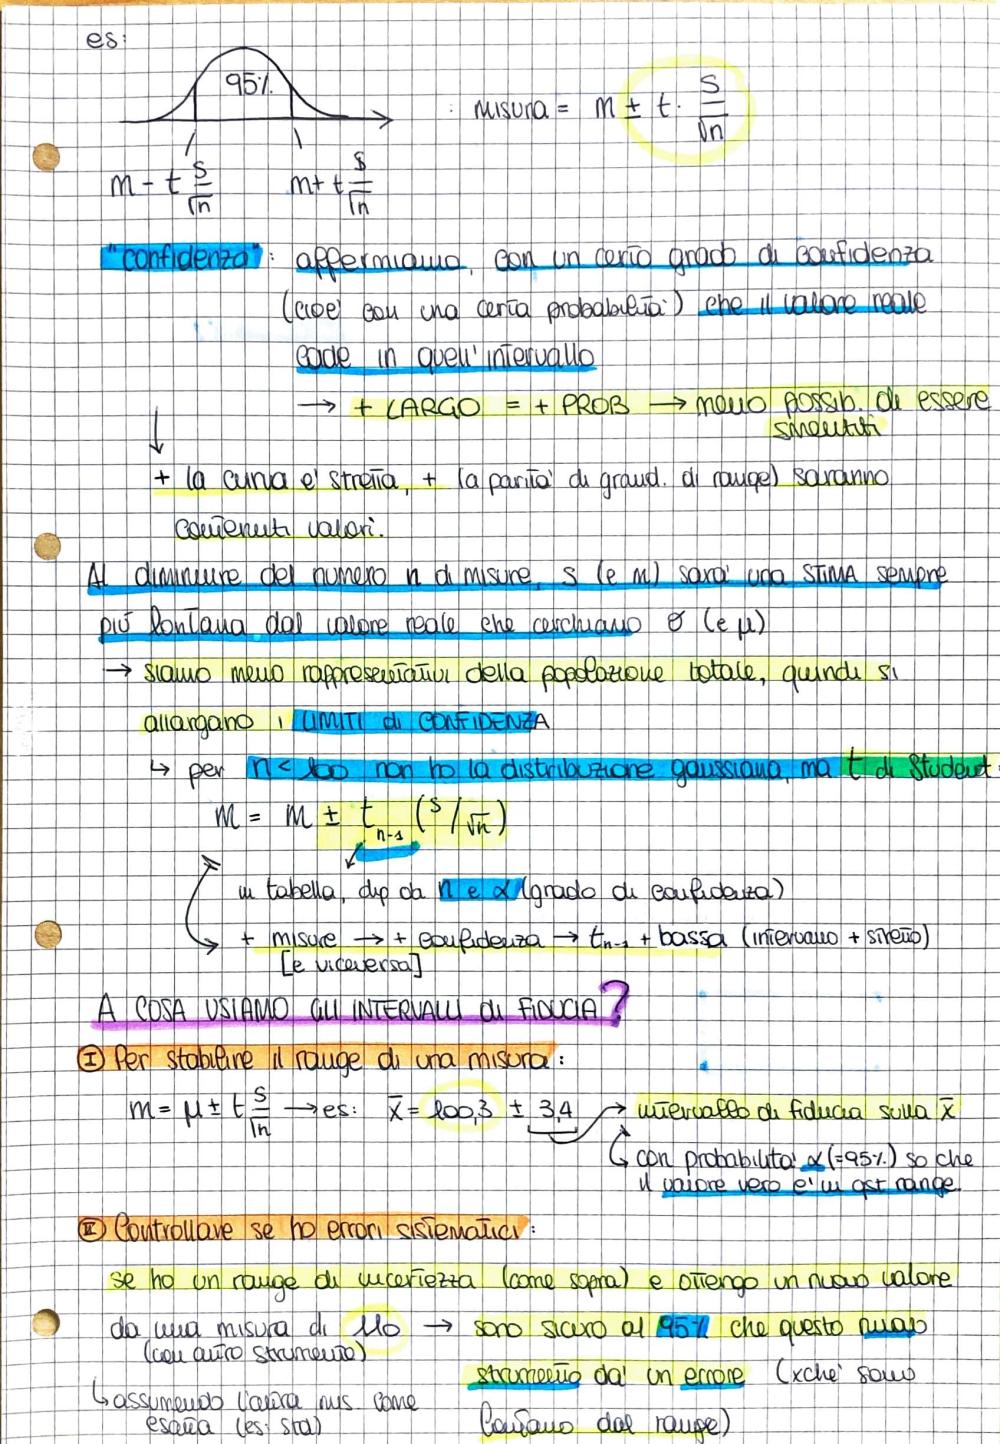 es:
95%
: misura = m ± t · s/√n
m - t s/√n   m + t s/√n
"confidenza": affermiamo, con un certo grado di confidenza
(cioè con una certa probabilità) che il valore reale
cade in quell'intervallo
→ + LARGO = + PROB → meno possib. di essere
smentiti
↓
+ la curva e' stretta, + (a parità di grand. di range) saranno
contenuti valori.
Al diminuire del numero n di misure, s (e m) sarà una STIMA sempre
più lontana dal valore reale che cerchiamo σ (e μ)
→ siamo meno rappresentativi della popolazione totale, quindi si
allargano i LIMITI di CONFIDENZA
↳ per n < 100 non ho la distribuzione gaussiana, ma t di Student:
m = m ± t n-1 (s/√n)
in tabella, dip da n e α (grado di confidenza)
+ misure → + confidenza → t n-1 + bassa (intervallo + stretto)
[e viceversa]
A COSA USIAMO GLI INTERVALLI di FIDUCIA?
Ⓘ Per stabilire il range di una misura:
m = μ ± t s/√n → es: x̄ = 100,3 ± 3,4 → intervallo di fiducia sulla x̄
↳ con probabilità α (=95%) so che
il valore vero e' in qst range.
Ⅱ Controllare se ho errori sistematici:
se ho un range di incertezza (come sopra) e ottengo un nuovo valore
da una misura di 110 → sono sicuro al 95% che questo nuovo
(con altro strumento)
strumento da' un errore (xche' sono
↳ assumendo l'altra mis come
esatta (es: std)
lontano dal range)